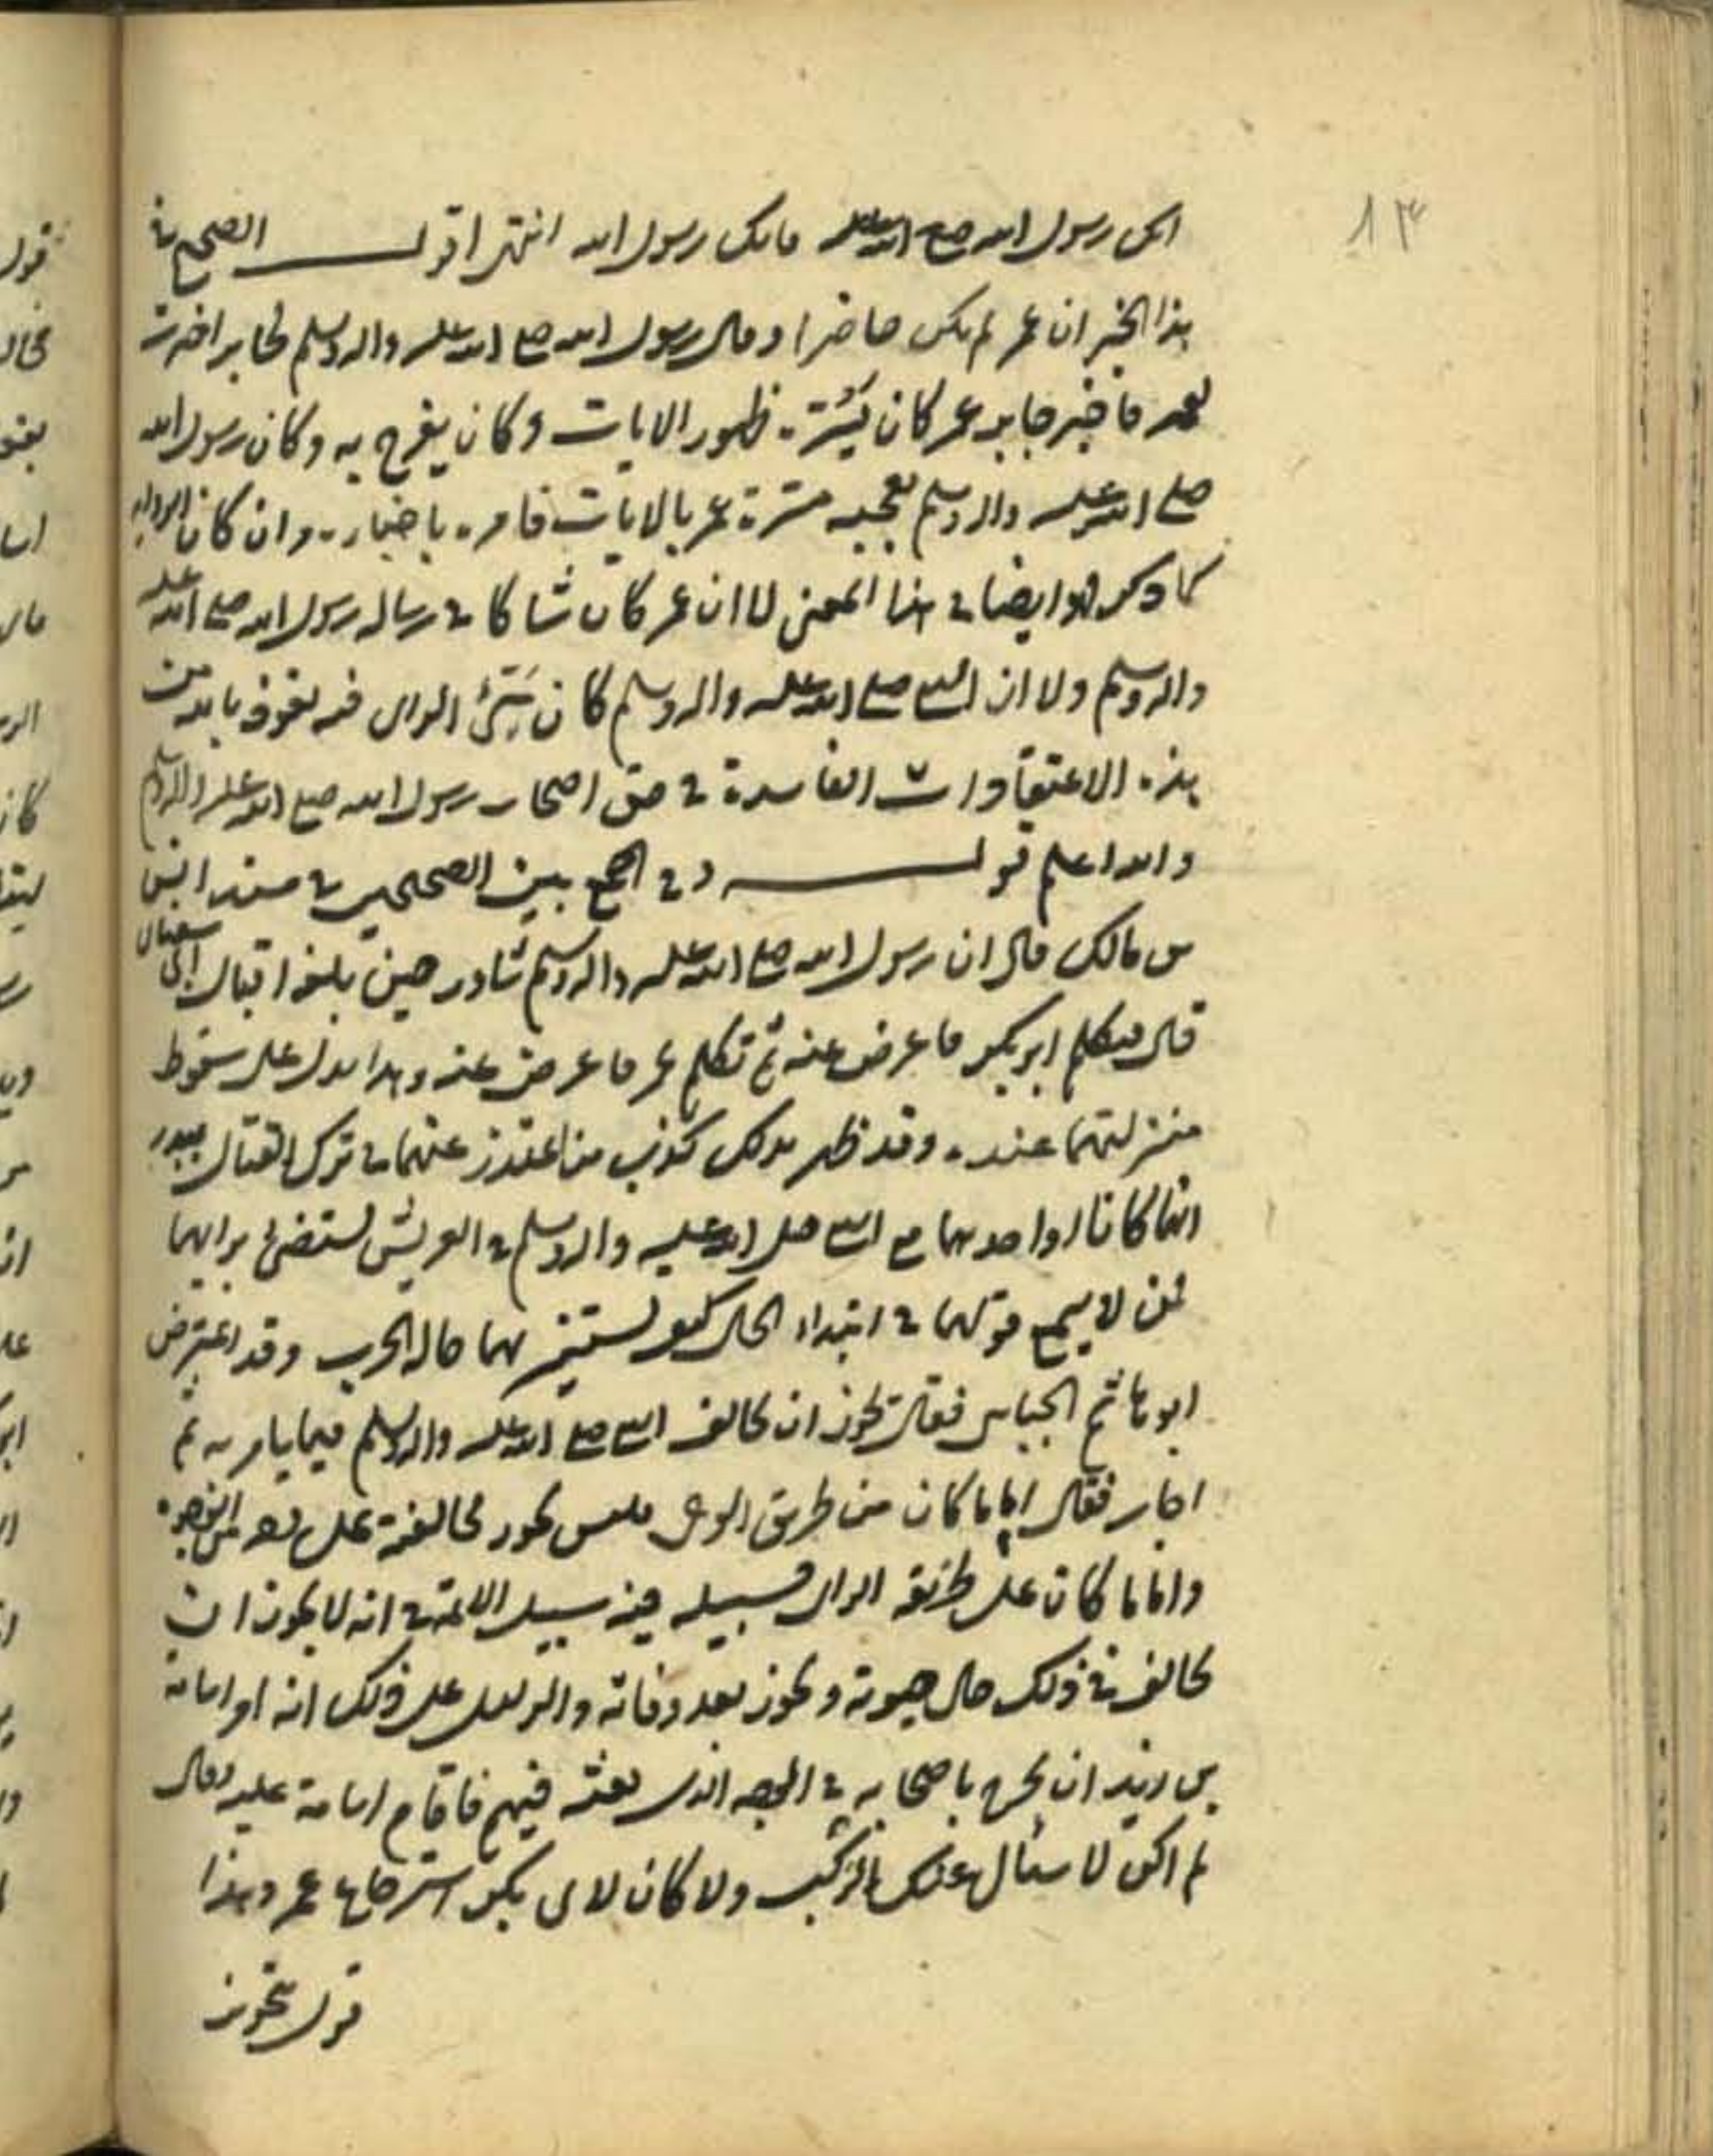 ١٣
رسول الله صلى الله عليه انك رسول الله انتهى اقول الصحيح في
هذا الخبر ان عمر لم يكن حاضرا وقال رسول الله صلى الله عليه واله وسلم لجابر اخبرت
عمر فاخبر جابر عمر كان ظهور الايات وكان يفرح به وكان رسول الله
صلى الله عليه واله وسلم يعجبه مسرة عمر بالايات فامره باخباره وان كان
كما ذكر هو ايضا في هذا المعنى لا ان عمر كان شاكا في رساله رسول الله صلى الله عليه
واله وسلم ولا ان النبي صلى الله عليه واله وسلم كان الراي فيه نعوذ بالله من
هذه الاعتقادات الفاسدة في حق اصحاب رسول الله صلى الله عليه واله وسلم
والله اعلم قوله وفي الجمع بين الصحيحين في مسند انس
بن مالك قال ان رسول الله صلى الله عليه واله وسلم شاور حين بلغه اقبال ابى سفيان
قال فتكلم ابو بكر فاعرض عنه ثم تكلم عمر فاعرض عنه وهذا يدل على سقوط
منزلتهما عنده وقد ظهر بذلك كذب من اعتذر عنهما في ترك القتال ببدر
انهما كانا احدهما مع النبي صلى الله عليه واله وسلم في العريش يستضئ برايهما
فمن لا يسمع قولهما في ابتداء الحال كيف يستنير بهما حاله الحرب وقد اعترض
ابو هاشم الجبايى فقال يجوز ان يخالف النبي صلى الله عليه واله وسلم فيما يامر به ثم
اجاب فقال اما ما كان من طريق الوحى فليس يجوز مخالفته على وجه من الوجوه
واما ما كان على طريقه الراى فسبيله فيه سبيل الائمة في انه لا يجوز ان
يخالف في ذلك حال حيوته ويجوز بعد وفاته والدليل على ذلك انه امر اسامة
بن زيد ان يخرج باصحابه في الوجه الذى بعثه فيهم فاقام اسامة عليه وقال
لم اكن لاسال عنك الركب ولا كان لابى بكر استرجاع عمر وهذا
قول بتجويز